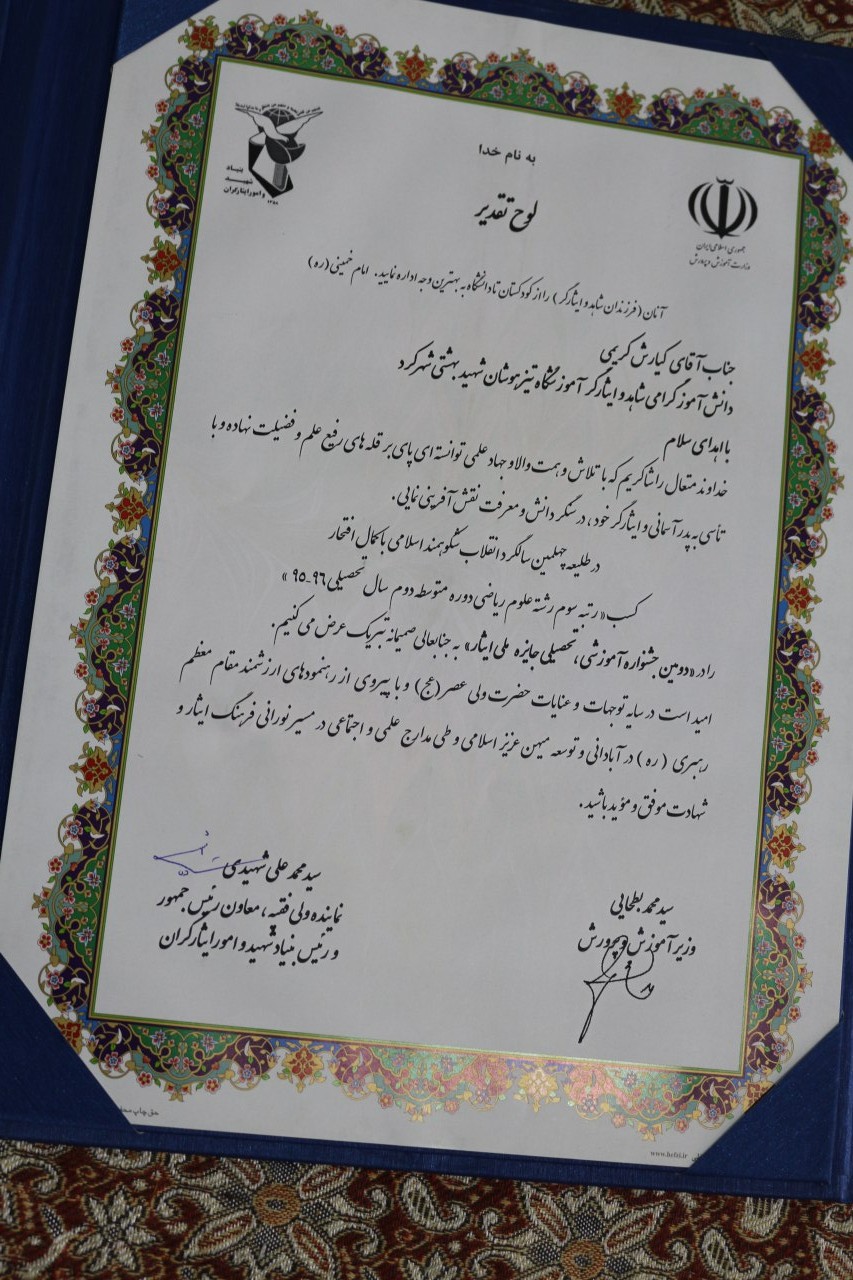 به نام خدا
لوح تقدیر
بنیاد
شهید
و امور ایثارگران
جمهوری اسلامی ایران
وزارت آموزش و پرورش
آنان (فرزندان شاهد و ایثارگر) را از کودکستان تا دانشگاه به بهترین وجه اداره نمایید. امام خمینی (ره)
جناب آقای کیارش کریمی
دانش آموز گرامی شاهد و ایثارگر آموزشگاه تیزهوشان شهید بهشتی شهرکرد
با اهدای سلام
خداوند متعال را شاکریم که با تلاش و همت والا و جهاد علمی توانسته ای پای بر قله های رفیع علم و فضیلت نهاده و با
تأسی به پدر آسمانی و ایثارگر خود، در سنگر دانش و معرفت نقش آفرینی نمایی.
در طلیعه چهلمین سالگرد انقلاب شکوهمند اسلامی با کمال افتخار
کسب « رتبه سوم رشته علوم ریاضی دوره متوسطه دوم سال تحصیلی ۹۶-۹۵ »
را در «دومین جشنواره آموزشی، تحصیلی جایزه ملی ایثار» به جنابعالی صمیمانه تبریک عرض می کنیم.
امید است در سایه توجهات و عنایات حضرت ولی عصر (عج) و با پیروی از رهنمودهای ارزشمند مقام معظم
رهبری (ره) در آبادانی و توسعه میهن عزیز اسلامی و طی مدارج علمی و اجتماعی در مسیر نورانی فرهنگ ایثار و
شهادت موفق و مؤید باشید.
سید محمد بطحایی
وزیر آموزش و پرورش
سید محمد علی شهیدی
نماینده ولی فقیه، معاون رئیس جمهور
و رئیس بنیاد شهید و امور ایثارگران
حق چاپ